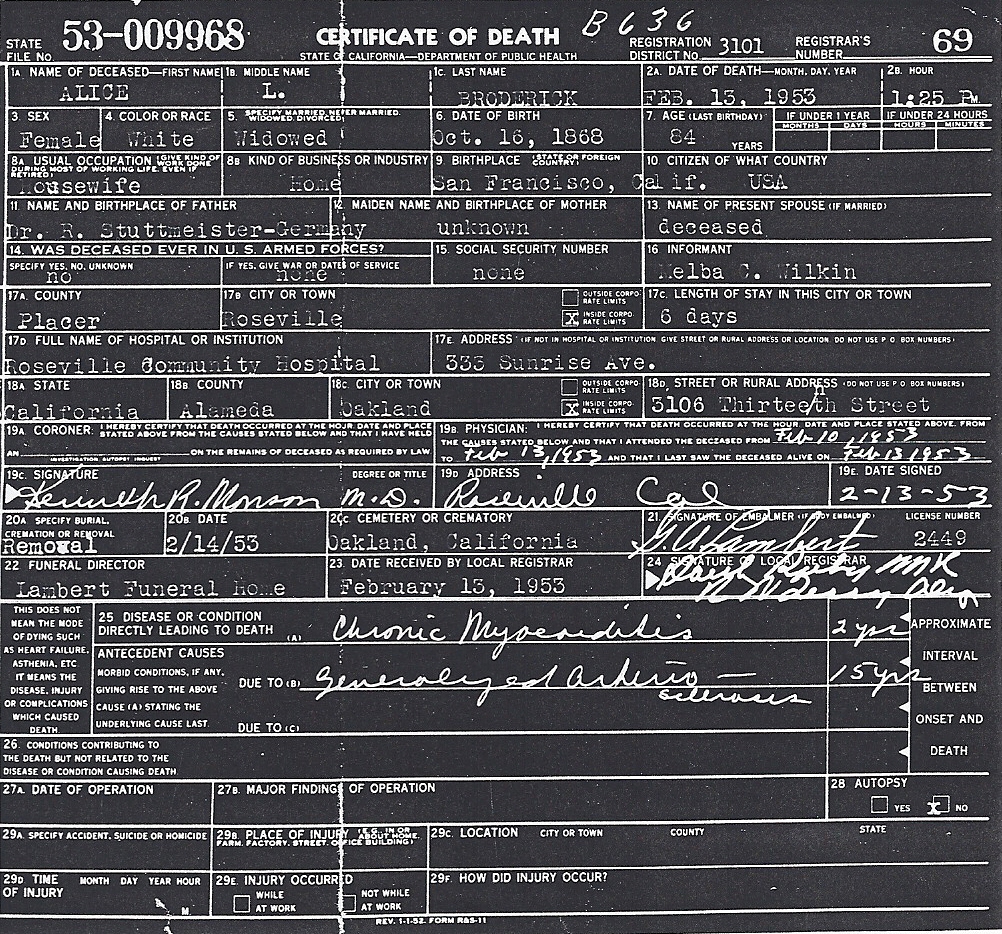 B636
STATE FILE NO. 53-009968 CERTIFICATE OF DEATH REGISTRATION DISTRICT NO. 3101 REGISTRAR'S NUMBER 69
STATE OF CALIFORNIA—DEPARTMENT OF PUBLIC HEALTH
1A. NAME OF DECEASED—FIRST NAME 1B. MIDDLE NAME 1C. LAST NAME 2A. DATE OF DEATH—MONTH, DAY, YEAR 2B. HOUR
ALICE L. BRODERICK FEB. 13, 1953 1:25 P.M.
3. SEX 4. COLOR OR RACE 5. SPECIFY MARRIED, NEVER MARRIED, WIDOWED, DIVORCED 6. DATE OF BIRTH 7. AGE (LAST BIRTHDAY) IF UNDER 1 YEAR IF UNDER 24 HOURS
MONTHS DAYS HOURS MINUTES
Female White Widowed Oct. 16, 1868 84 YEARS
8A. USUAL OCCUPATION (GIVE KIND OF WORK DONE DURING MOST OF WORKING LIFE, EVEN IF RETIRED) 8B. KIND OF BUSINESS OR INDUSTRY 9. BIRTHPLACE (STATE OR FOREIGN COUNTRY) 10. CITIZEN OF WHAT COUNTRY
Housewife Home San Francisco, Calif. USA
11. NAME AND BIRTHPLACE OF FATHER 12. MAIDEN NAME AND BIRTHPLACE OF MOTHER 13. NAME OF PRESENT SPOUSE (IF MARRIED)
Dr. R. Stuttmeister-Germany unknown deceased
14. WAS DECEASED EVER IN U. S. ARMED FORCES? 15. SOCIAL SECURITY NUMBER 16. INFORMANT
SPECIFY YES, NO, UNKNOWN IF YES, GIVE WAR OR DATES OF SERVICE
no none none Melba C. Wilkin
17A. COUNTY 17B. CITY OR TOWN OUTSIDE CORPORATE LIMITS X INSIDE CORPORATE LIMITS 17C. LENGTH OF STAY IN THIS CITY OR TOWN
Placer Roseville 6 days
17D. FULL NAME OF HOSPITAL OR INSTITUTION 17E. ADDRESS (IF NOT IN HOSPITAL OR INSTITUTION GIVE STREET OR RURAL ADDRESS OR LOCATION. DO NOT USE P. O. BOX NUMBERS)
Roseville Community Hospital 333 Sunrise Ave.
18A. STATE 18B. COUNTY 18C. CITY OR TOWN OUTSIDE CORPORATE LIMITS X INSIDE CORPORATE LIMITS 18D. STREET OR RURAL ADDRESS (DO NOT USE P. O. BOX NUMBERS)
California Alameda Oakland 3106 Thirteeth Street
n
19A. CORONER: I HEREBY CERTIFY THAT DEATH OCCURRED AT THE HOUR, DATE AND PLACE STATED ABOVE FROM THE CAUSES STATED BELOW AND THAT I HAVE HELD
AN INVESTIGATION, AUTOPSY, INQUEST ON THE REMAINS OF DECEASED AS REQUIRED BY LAW.
19B. PHYSICIAN: I HEREBY CERTIFY THAT DEATH OCCURRED AT THE HOUR, DATE AND PLACE STATED ABOVE, FROM
THE CAUSES STATED BELOW AND THAT I ATTENDED THE DECEASED FROM Feb 10, 1953
TO Feb 13, 1953 AND THAT I LAST SAW THE DECEASED ALIVE ON Feb 13 1953
19C. SIGNATURE DEGREE OR TITLE 19D. ADDRESS 19E. DATE SIGNED
Kenneth R. Monson M.D. Roseville Cal 2-13-53
20A. SPECIFY BURIAL, CREMATION OR REMOVAL 20B. DATE 20C. CEMETERY OR CREMATORY 21. SIGNATURE OF EMBALMER (IF BODY EMBALMED) LICENSE NUMBER
Removal 2/14/53 Oakland, California G. A. Lambert 2449
22. FUNERAL DIRECTOR 23. DATE RECEIVED BY LOCAL REGISTRAR 24. SIGNATURE OF LOCAL REGISTRAR
Lambert Funeral Home February 13, 1953
THIS DOES NOT MEAN THE MODE OF DYING SUCH AS HEART FAILURE, ASTHENIA, ETC. IT MEANS THE DISEASE, INJURY OR COMPLICATIONS WHICH CAUSED DEATH.
25. DISEASE OR CONDITION DIRECTLY LEADING TO DEATH (A) Chronic Myocarditis 2 yrs
ANTECEDENT CAUSES
MORBID CONDITIONS, IF ANY, GIVING RISE TO THE ABOVE CAUSE (A) STATING THE UNDERLYING CAUSE LAST.
DUE TO (B) Generalyzed Arterio— 15 yrs
sclerosis
DUE TO (C)
APPROXIMATE INTERVAL BETWEEN ONSET AND DEATH
26. CONDITIONS CONTRIBUTING TO THE DEATH BUT NOT RELATED TO THE DISEASE OR CONDITION CAUSING DEATH.
27A. DATE OF OPERATION 27B. MAJOR FINDINGS OF OPERATION 28. AUTOPSY
YES X NO
29A. SPECIFY ACCIDENT, SUICIDE OR HOMICIDE 29B. PLACE OF INJURY (E.G., IN OR ABOUT HOME, FARM, FACTORY, STREET, OFFICE BUILDING) 29C. LOCATION CITY OR TOWN COUNTY STATE
29D. TIME OF INJURY MONTH DAY YEAR HOUR M. 29E. INJURY OCCURRED WHILE AT WORK NOT WHILE AT WORK 29F. HOW DID INJURY OCCUR?
REV. 1-1-52. FORM R&S-11